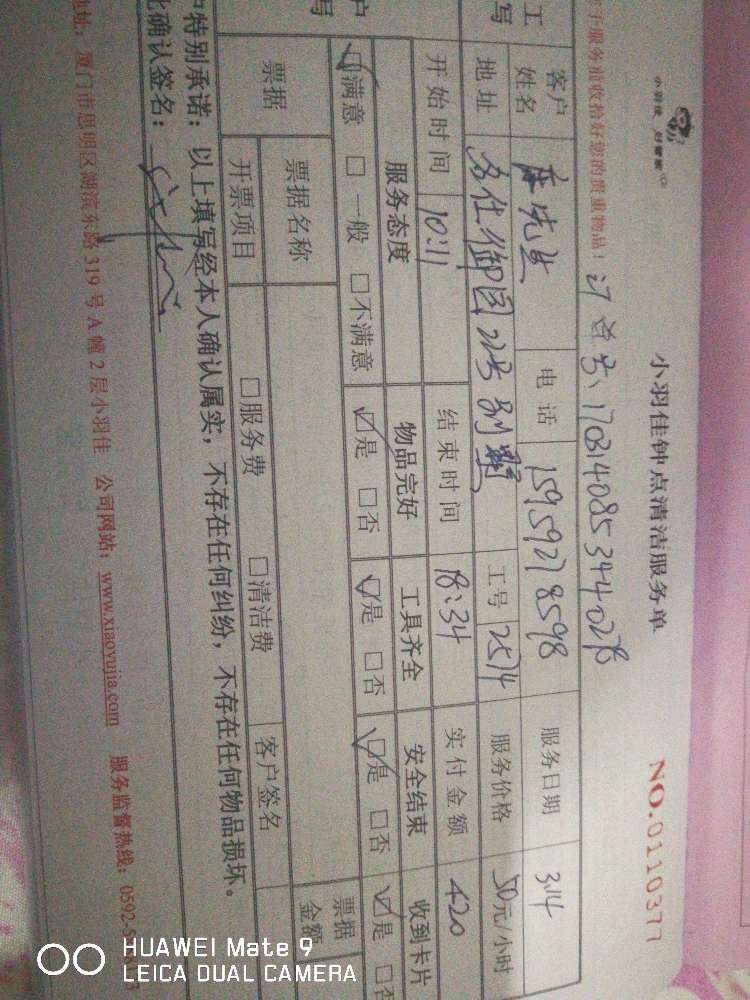 小羽佳 好管家
小羽佳钟点清洁服务单
NO.0110377
服务前收拾好您的贵重物品!
工
写
客户姓名
先生
电话
15959218598
服务日期
3.14
地址
名仕御园22号别墅
工号
2574
服务价格
50元/小时
开始时间
10:11
结束时间
18:34
实付金额
420
户
写
服务态度
物品完好
工具齐全
安全结束
收到卡片
☑满意 □一般 □不满意
☑是 □否
☑是 □否
☑是 □否
☑是 □否
票据
票据名称
票据金额
开票项目
□服务费
□清洁费
客户签名
户特别承诺:以上填写经本人确认属实,不存在任何纠纷,不存在任何物品损坏。
此确认签名:
地址:厦门市思明区湖滨东路319号A幢2层小羽佳 公司网站:www.xiaoyujia.com 服务监督热线:0592-
HUAWEI Mate 9
LEICA DUAL CAMERA